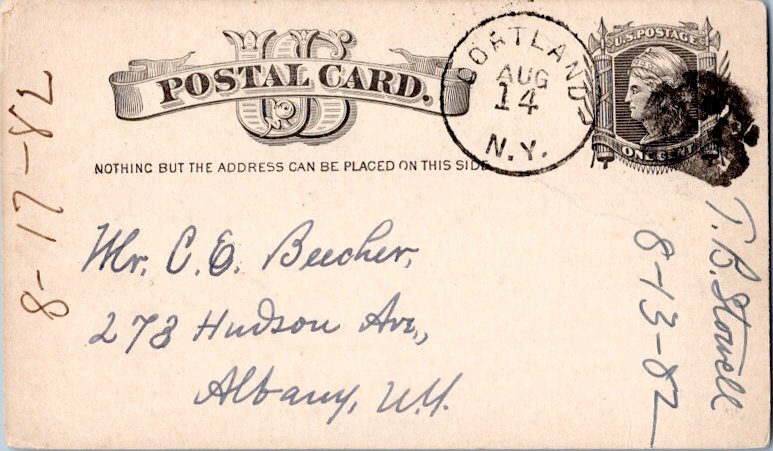 US
POSTAL CARD.
NOTHING BUT THE ADDRESS CAN BE PLACED ON THIS SIDE
CORTLAND
AUG
14
N.Y.
U.S. POSTAGE
ONE CENT
Mr. C. E. Beecher,
273 Hudson Ave.,
Albany, N.Y.
8-17-82
T. B. Stowell
8-13-82